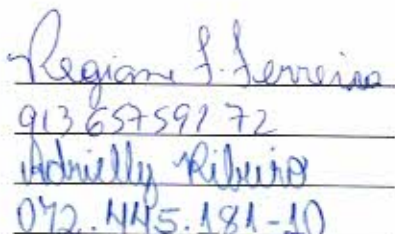 Regiane F. Ferreira
913 657591 72
Adrielly Ribeiro
072.445.181-10